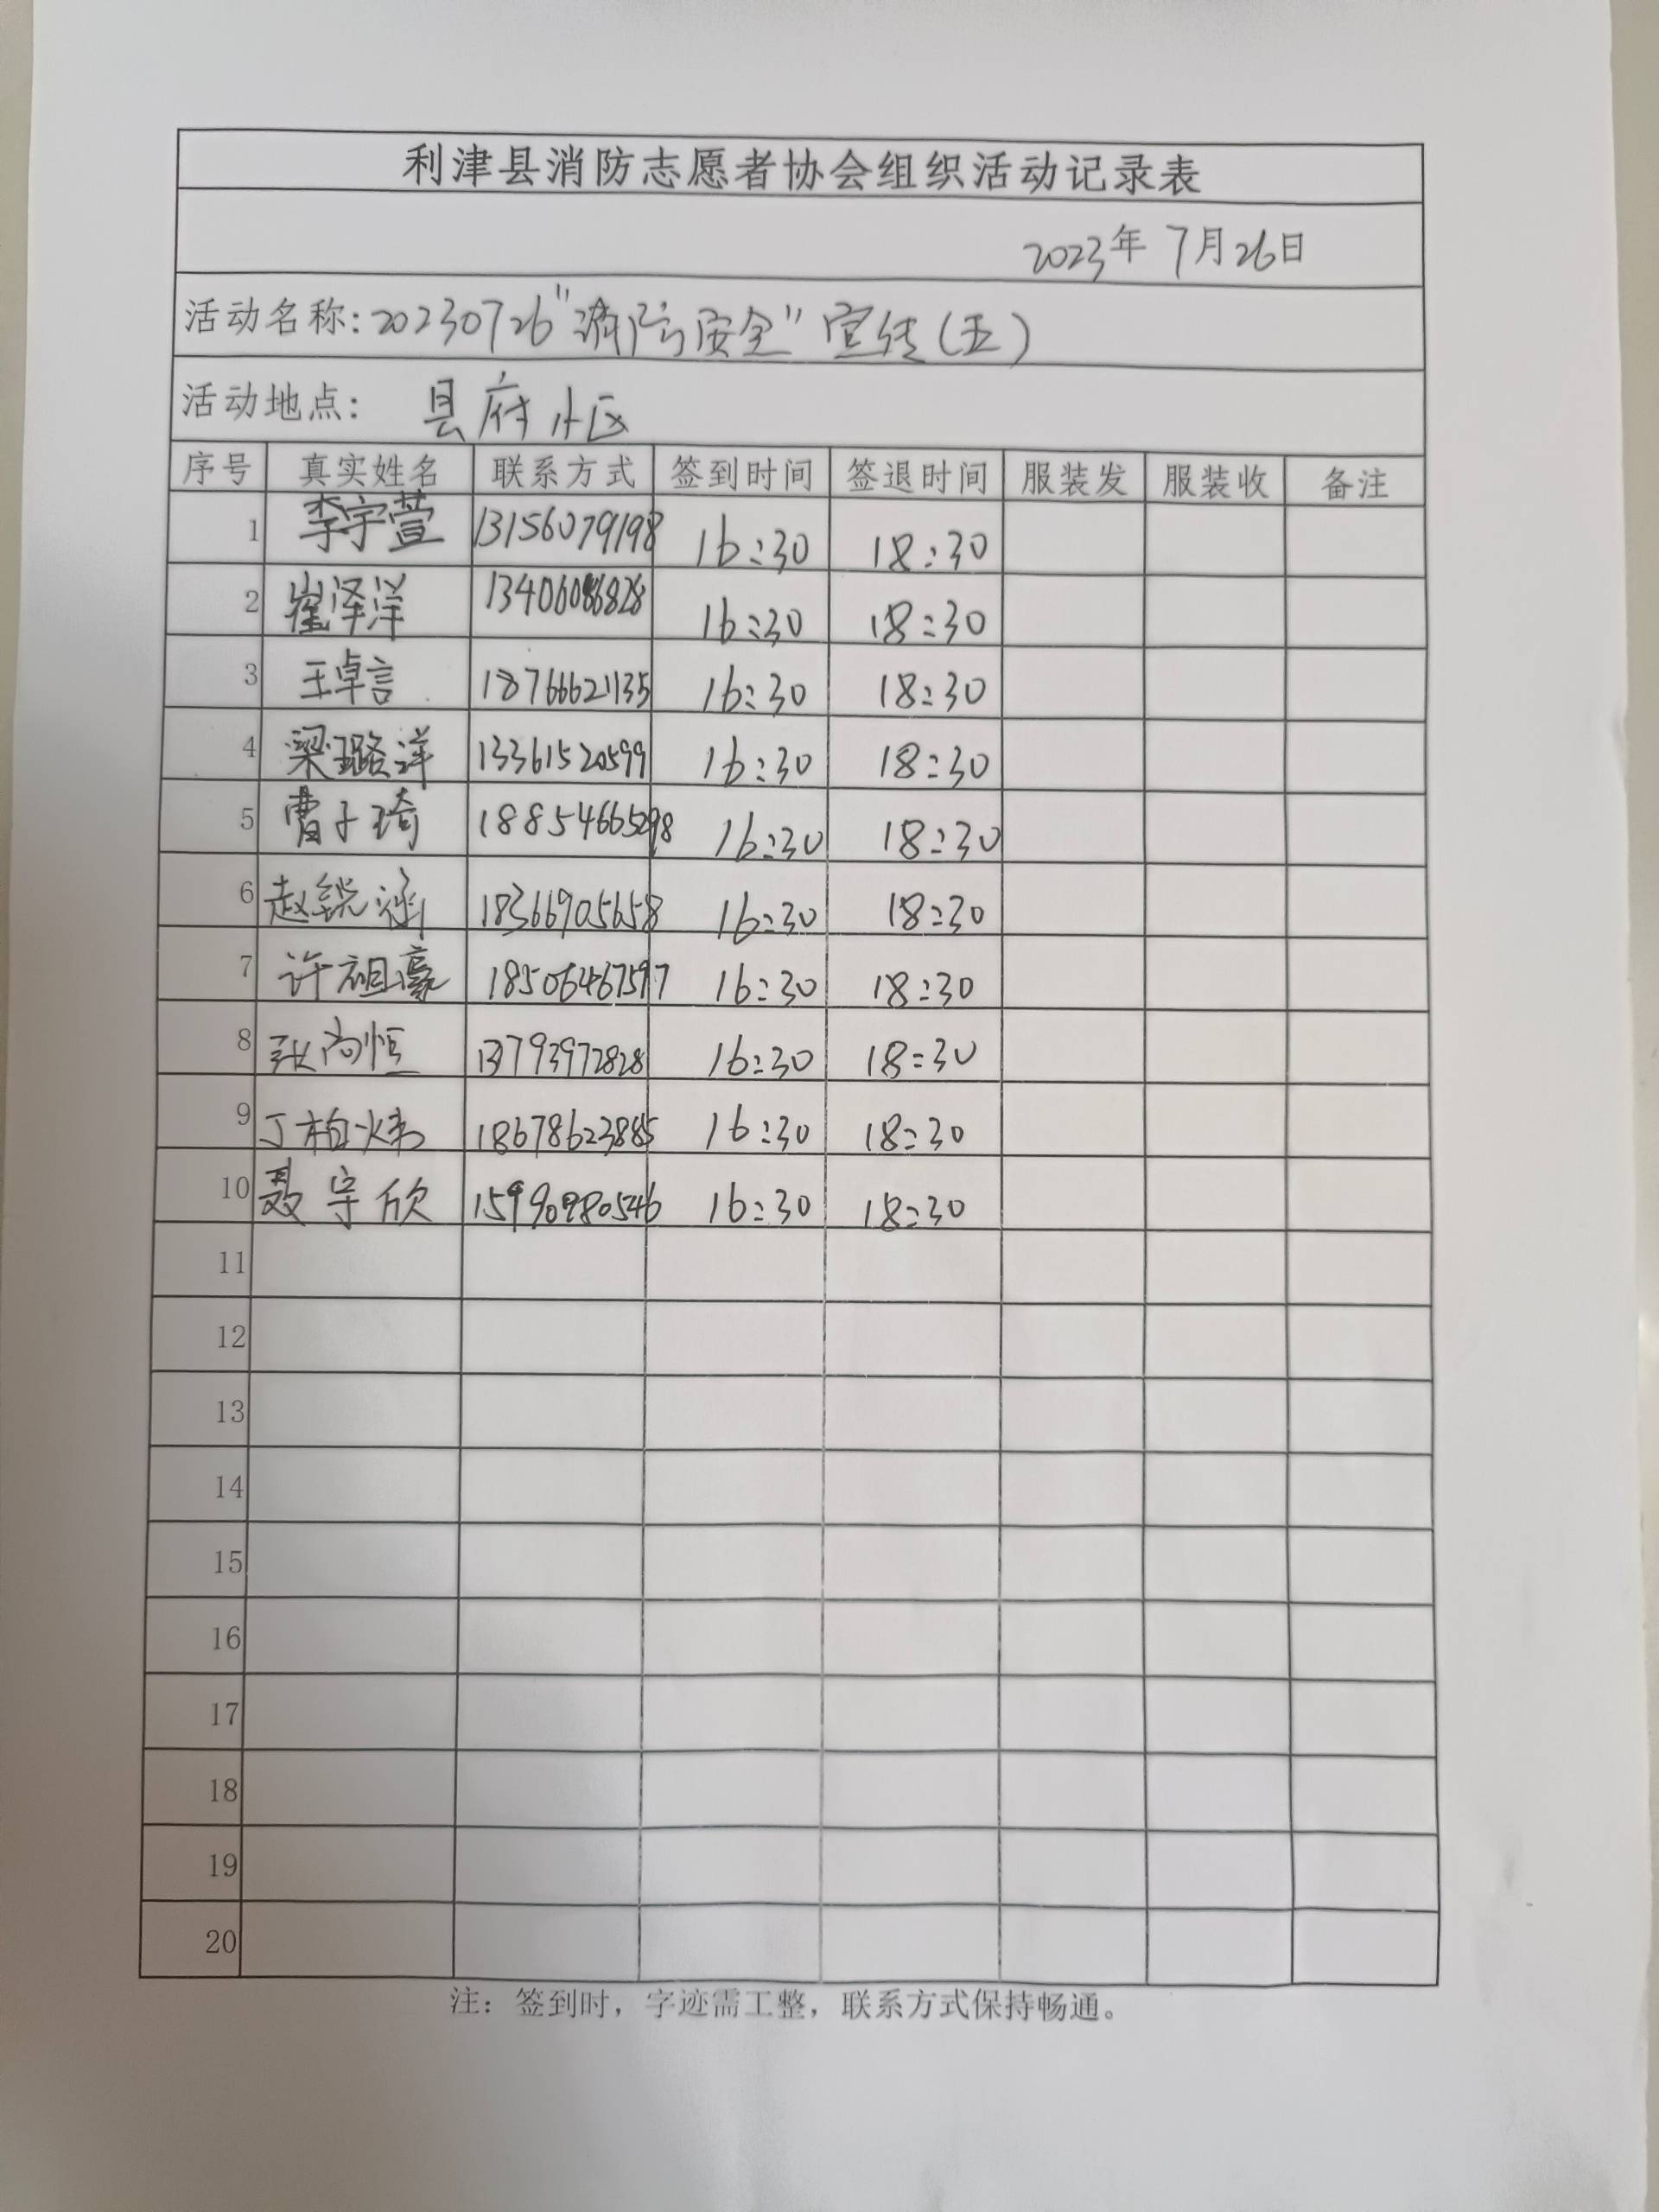 利津县消防志愿者协会组织活动记录表
2023年 7月26日
活动名称:20230726"消防安全"宣传(五)
活动地点: 县府小区
序号 真实姓名 联系方式 签到时间 签退时间 服装发 服装收 备注
1 李宇萱 13156079198 16:30 18:30
2 崔泽洋 16:30 18:30
3 王卓言 18766621135 16:30 18:30
4 梁璐洋 13361520599 16:30 18:30
5 曹子琦 18854665298 16:30 18:30
6 赵锐涵 18366905658 16:30 18:30
7 许祖豪 18506467597 16:30 18:30
8 张尚恒 13793972828 16:30 18:30
9 丁柏炜 18678623885 16:30 18:30
10 聂宇欣 15990980546 16:30 18:30
11
12
13
14
15
16
17
18
19
20
注：签到时，字迹需工整，联系方式保持畅通。